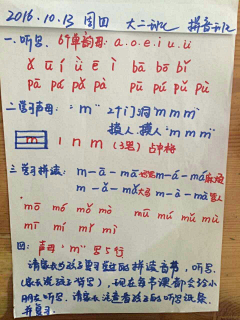 2016.10.13 周四 大二班 拼音
一、听写. 6个单韵母: a.o.e.i.u.ü
ǎ ú í ǜ ē ī bā bō bǐ
pā pá pǎ pà pū pú pǔ pù
二、学习声母: "m" 2个门洞"m m m"
摸人.摸人"m m m"
m l n m (3笔) 占中格
三、学习拼读: m-ā-mā m-á-má
m-ǎ-mǎ大马 m-à-mà骂人
mō mó mǒ mò mū mú mǔ mù
mī mí mǐ mì
四: 声母"m"写5行
请家长与孩子复习在此的拼读音节, 听写.
(家长说孩子写), 现在每节课都会给小
朋友听写. 请家长注意看孩子的听写纸条.
并复习.